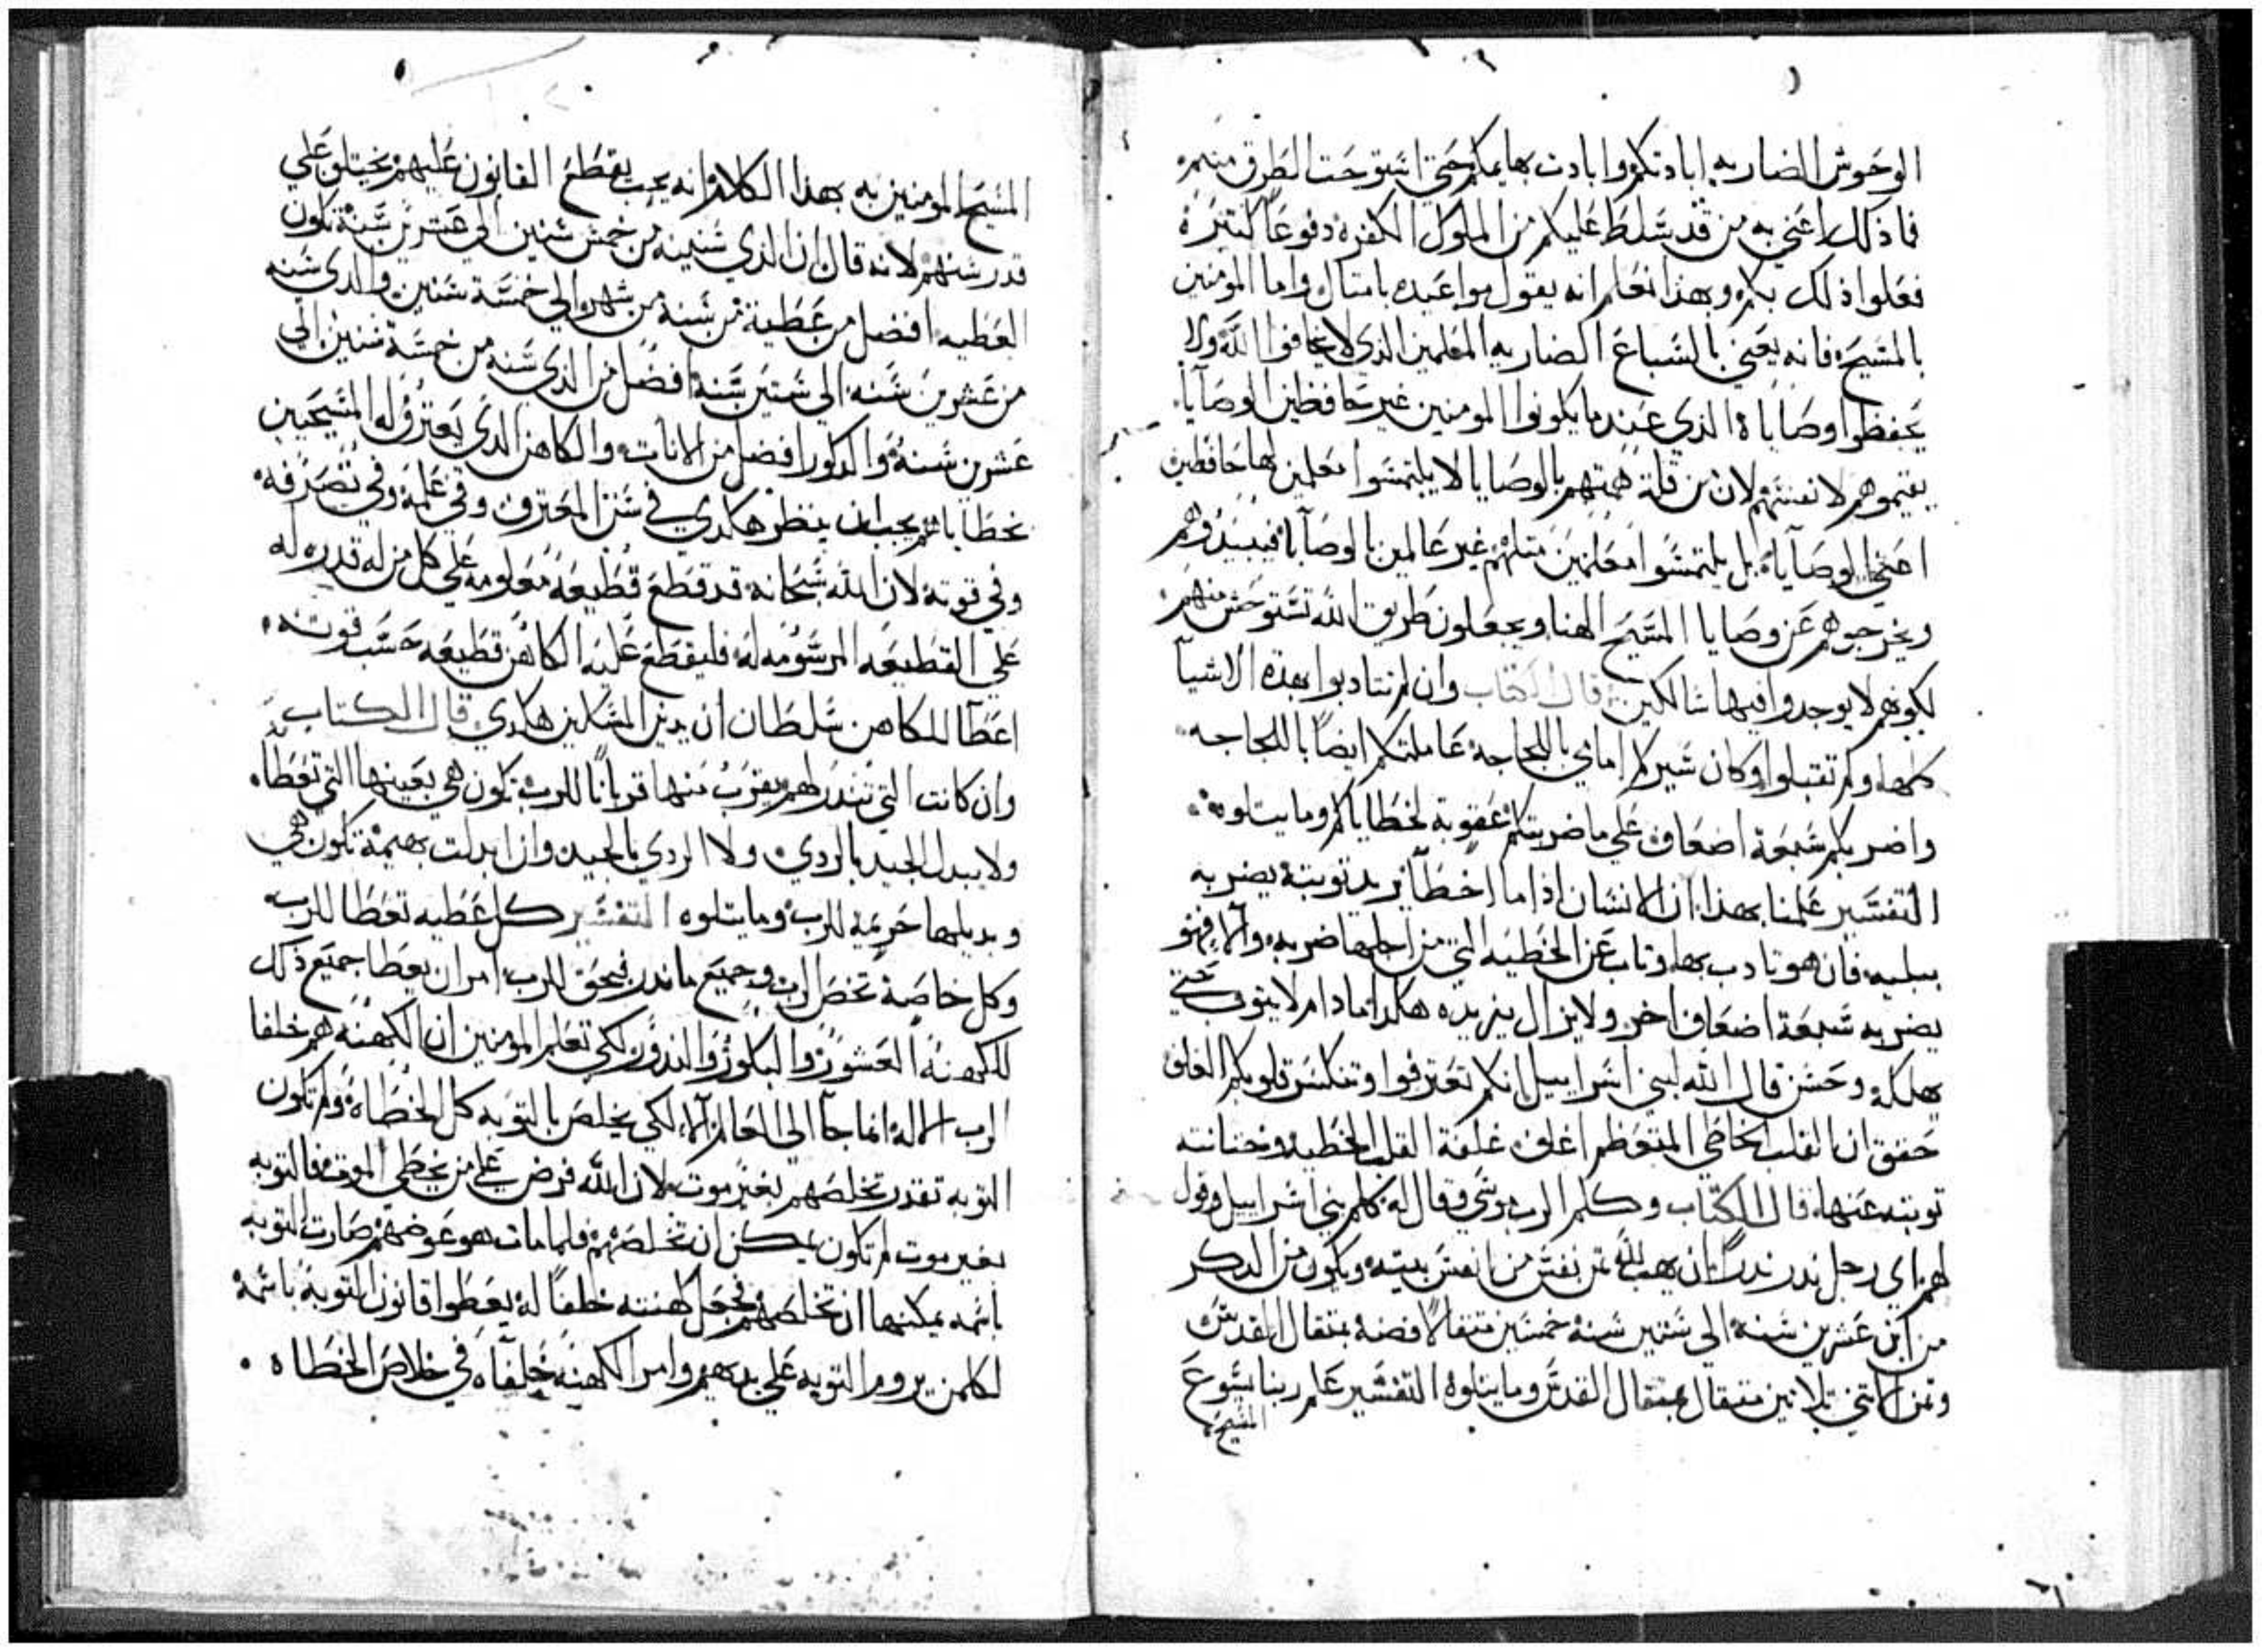 الوحوش الضاريه ابادتكم وابادت بهايمكم حتى استوحت الطرق منهم
فاذلك اعني به من قد سلط عليكم من الملوك الكفره دفوعا كتيره
فعلوا ذلك بكم وبهذا نعلم انه يقول مواعيده بامتال واما المومنين
بالمسيح فانه يعني بالسباع الضاريه المعلمين الذي لا يخافوا الله ولا
يحفظوا وصاياه الذي عندما يكونوا المومنين غير حافظين الوصايا
يقيموهم لانفسهم لان من قلة همتهم بالوصايا لا يلتمسوا معلمين لها حافظين
اعني الوصاياه بل يلتمسوا معلمين متلهم غير عالمين بالوصاياه فيبيدوهم
ويخرجوهم عن وصايا المسيح الهنا ويجعلون طريق الله تستوحش منهم
لكونهم لا يوجدوا فيها سالكين قال الكتاب وان لم تتادبوا بهذه الاشيا
كلها ولم تقبلوا وكان سيركم امامي باللجاجه عاملتكم ايضا باللجاجه
واضربكم سبعة اضعاف على ما ضربتكم عقوبة لخطاياكم وما يتلوه
التفسير علمنا بهذا ان الانسان اذا ما اخطا يريد توبته يضربه
ببليه فان هو تادب بها وتاب عن الخطيه التي من اجلها ضربه والا فهو
يضربه سبعة اضعاف اخر ولا يزال يزيده هكذا ما دام لا يتوب حتى
يهلكه وحسن قال الله لبني اسراييل انكم تعترفوا وتنكسر قلوبكم الغلف
حقق ان القلب الخاطي المتعظم اغلف غلفة القلب الخطيه وختانته
توبته عنها قال الكتاب وكلم الرب موسي وقال له كلم بني اسراييل وقول
لهم اي رجل ندر ندرا ان يهب لله تمن نفس من انفس بيته ويكون من الدكر
من ابن عشرين سنه الى ستين سنه خمسين متقالا فضه بمتقال القدس
وتمن الانتي تلاتين متقال بمتقال القدس وما يتلوه التفسير علم ربنا يسوع
المسيح
المسيح المومنين به بهذا الكلام انه يجب يقطع القانون عليهم بخيتلو علي
قدر سنهم لانه قال ان الذي سنينه من خمس سنين الي عشرين سنة تكون
العطيه افضل من عطية من سنه من شهر الي خمسة سنين والدي سنه
من عشرين سنه الي ستين سنة افضل من الذي سنه من خمسة سنين الي
عشرين سنة والدكور افضل من الانات والكاهن الذي يعترف له المسيحيين
بخطاياهم يجب ان ينظر هكدي في سن المعترف وفي علمه وفي تصرفه
وفي قوته لان الله سبحانه قد قطع قطيعه معلومه علي كل من له قدره له
علي القطيعه المرسومه له فليقطع عليه الكاهن قطيعه حسب قوته
اعطا للكاهن سلطان ان يدين المساكين هكدي قال الكتاب
وان كانت التي تندر لهم يقرب منها قربانا للرب تكون هي بعينها التي تعطا
ولا يبدل الجيد بالردي ولا الردي بالجيد وان ابدلت بهيمة تكون هي
وبديلها حرمه للرب وما يتلوه التفسير كل عطيه تعطا للرب
وكل خاصة تخص الرب وجميع ما ندر بحق للرب امر ان يعطا جميع ذلك
للكهنه العشور والبكور والندور لكي تعلم المومنين ان الكهنه هم خلفا
الرب الاله انما جا الى العالم الا لكي يخلص بالتوبه كل الخطاه ولم تكون
التوبه تقدر تخلصهم بغير موت لان الله فرض علي من يخطي الموت فالتوبه
بغير موت لم تكون يمكن ان تخلصهم فلما مات هو عوضهم صارت التوبه
باسمه يمكنها ان تخلصهم فجعل كهنته خلفا له يعطوا قانون التوبه باسمه
لكلمن يروم التوبه علي يدهم وامر الكهنه خلفاه في خلاص الخطاه